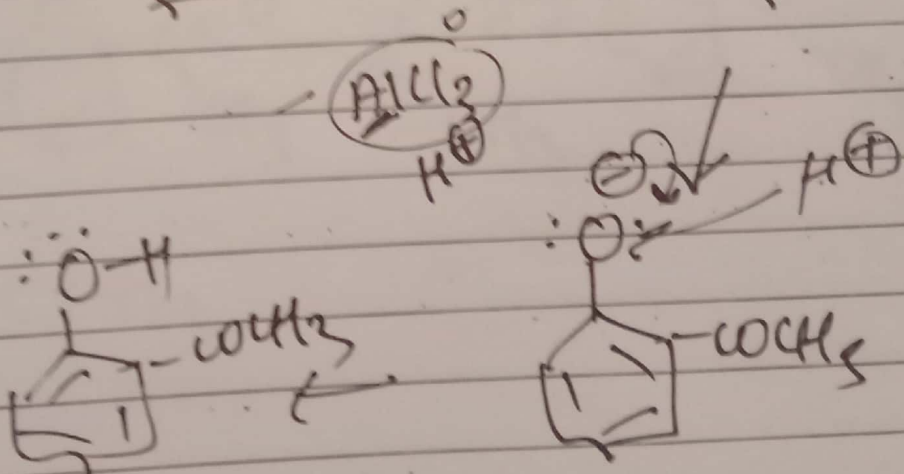 O
AlCl3
H⊕
⊖
H⊕
:Ö-H
:O:
-COCH3
-COCH3